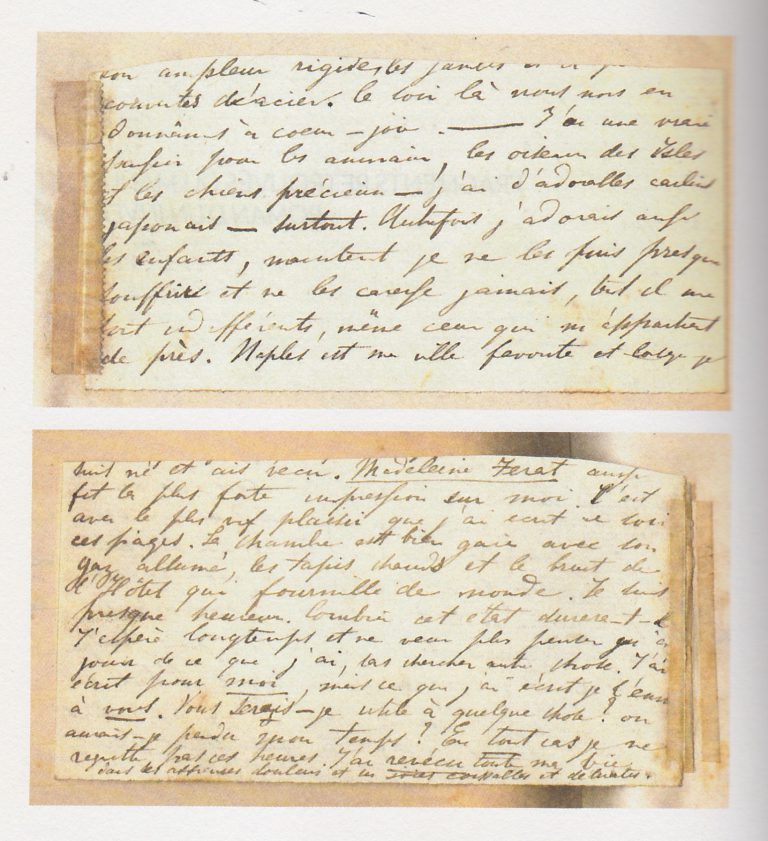 son ampleur rigide, les jambes et
couvertes d'acier. Ce soir là nous nous en
donnâmes à coeur-joie. — J'ai une vraie
pour les animaux, les oiseaux des Isles
et les chiens précieux — j'ai d'adorables carlins
japonais — surtout. Autrefois j'adorais aussi
les enfants, maintent je ne les puis presque
souffrir et ne les caresse jamais, tout il me
sont indifférents, même ceux qui m'appartient
de près. Naples est ma ville favorite et lorsque j'y
suis né et ais vecu. Madeleine Ferat aussi
fit la plus forte impression sur moi. C'est
avec le plus vif plaisir que j'ai ecrit ce soir
ces pages. La chambre est bien gaie avec son
gaz allumé, les tapis chauds et le bruit de
l'Hôtel qui fourmille de monde. Je suis
presque heureux. Combien cet etat durerent-il
J'espère longtemps et ne veux plus penser qu'à
jouir de ce que j'ai, sas chercher autre chose. J'ai
ecrit pour moi, mais ce que j'ai écrit je l'envoi
à vous. Vous serais-je utile à quelque chose? ou
aurais-je perdu mon temps? En tout cas je ne
regrette pas ces heures. J'ai revécu toute ma vie
dans les affreuses douleurs et les joies coupables et delirantes.